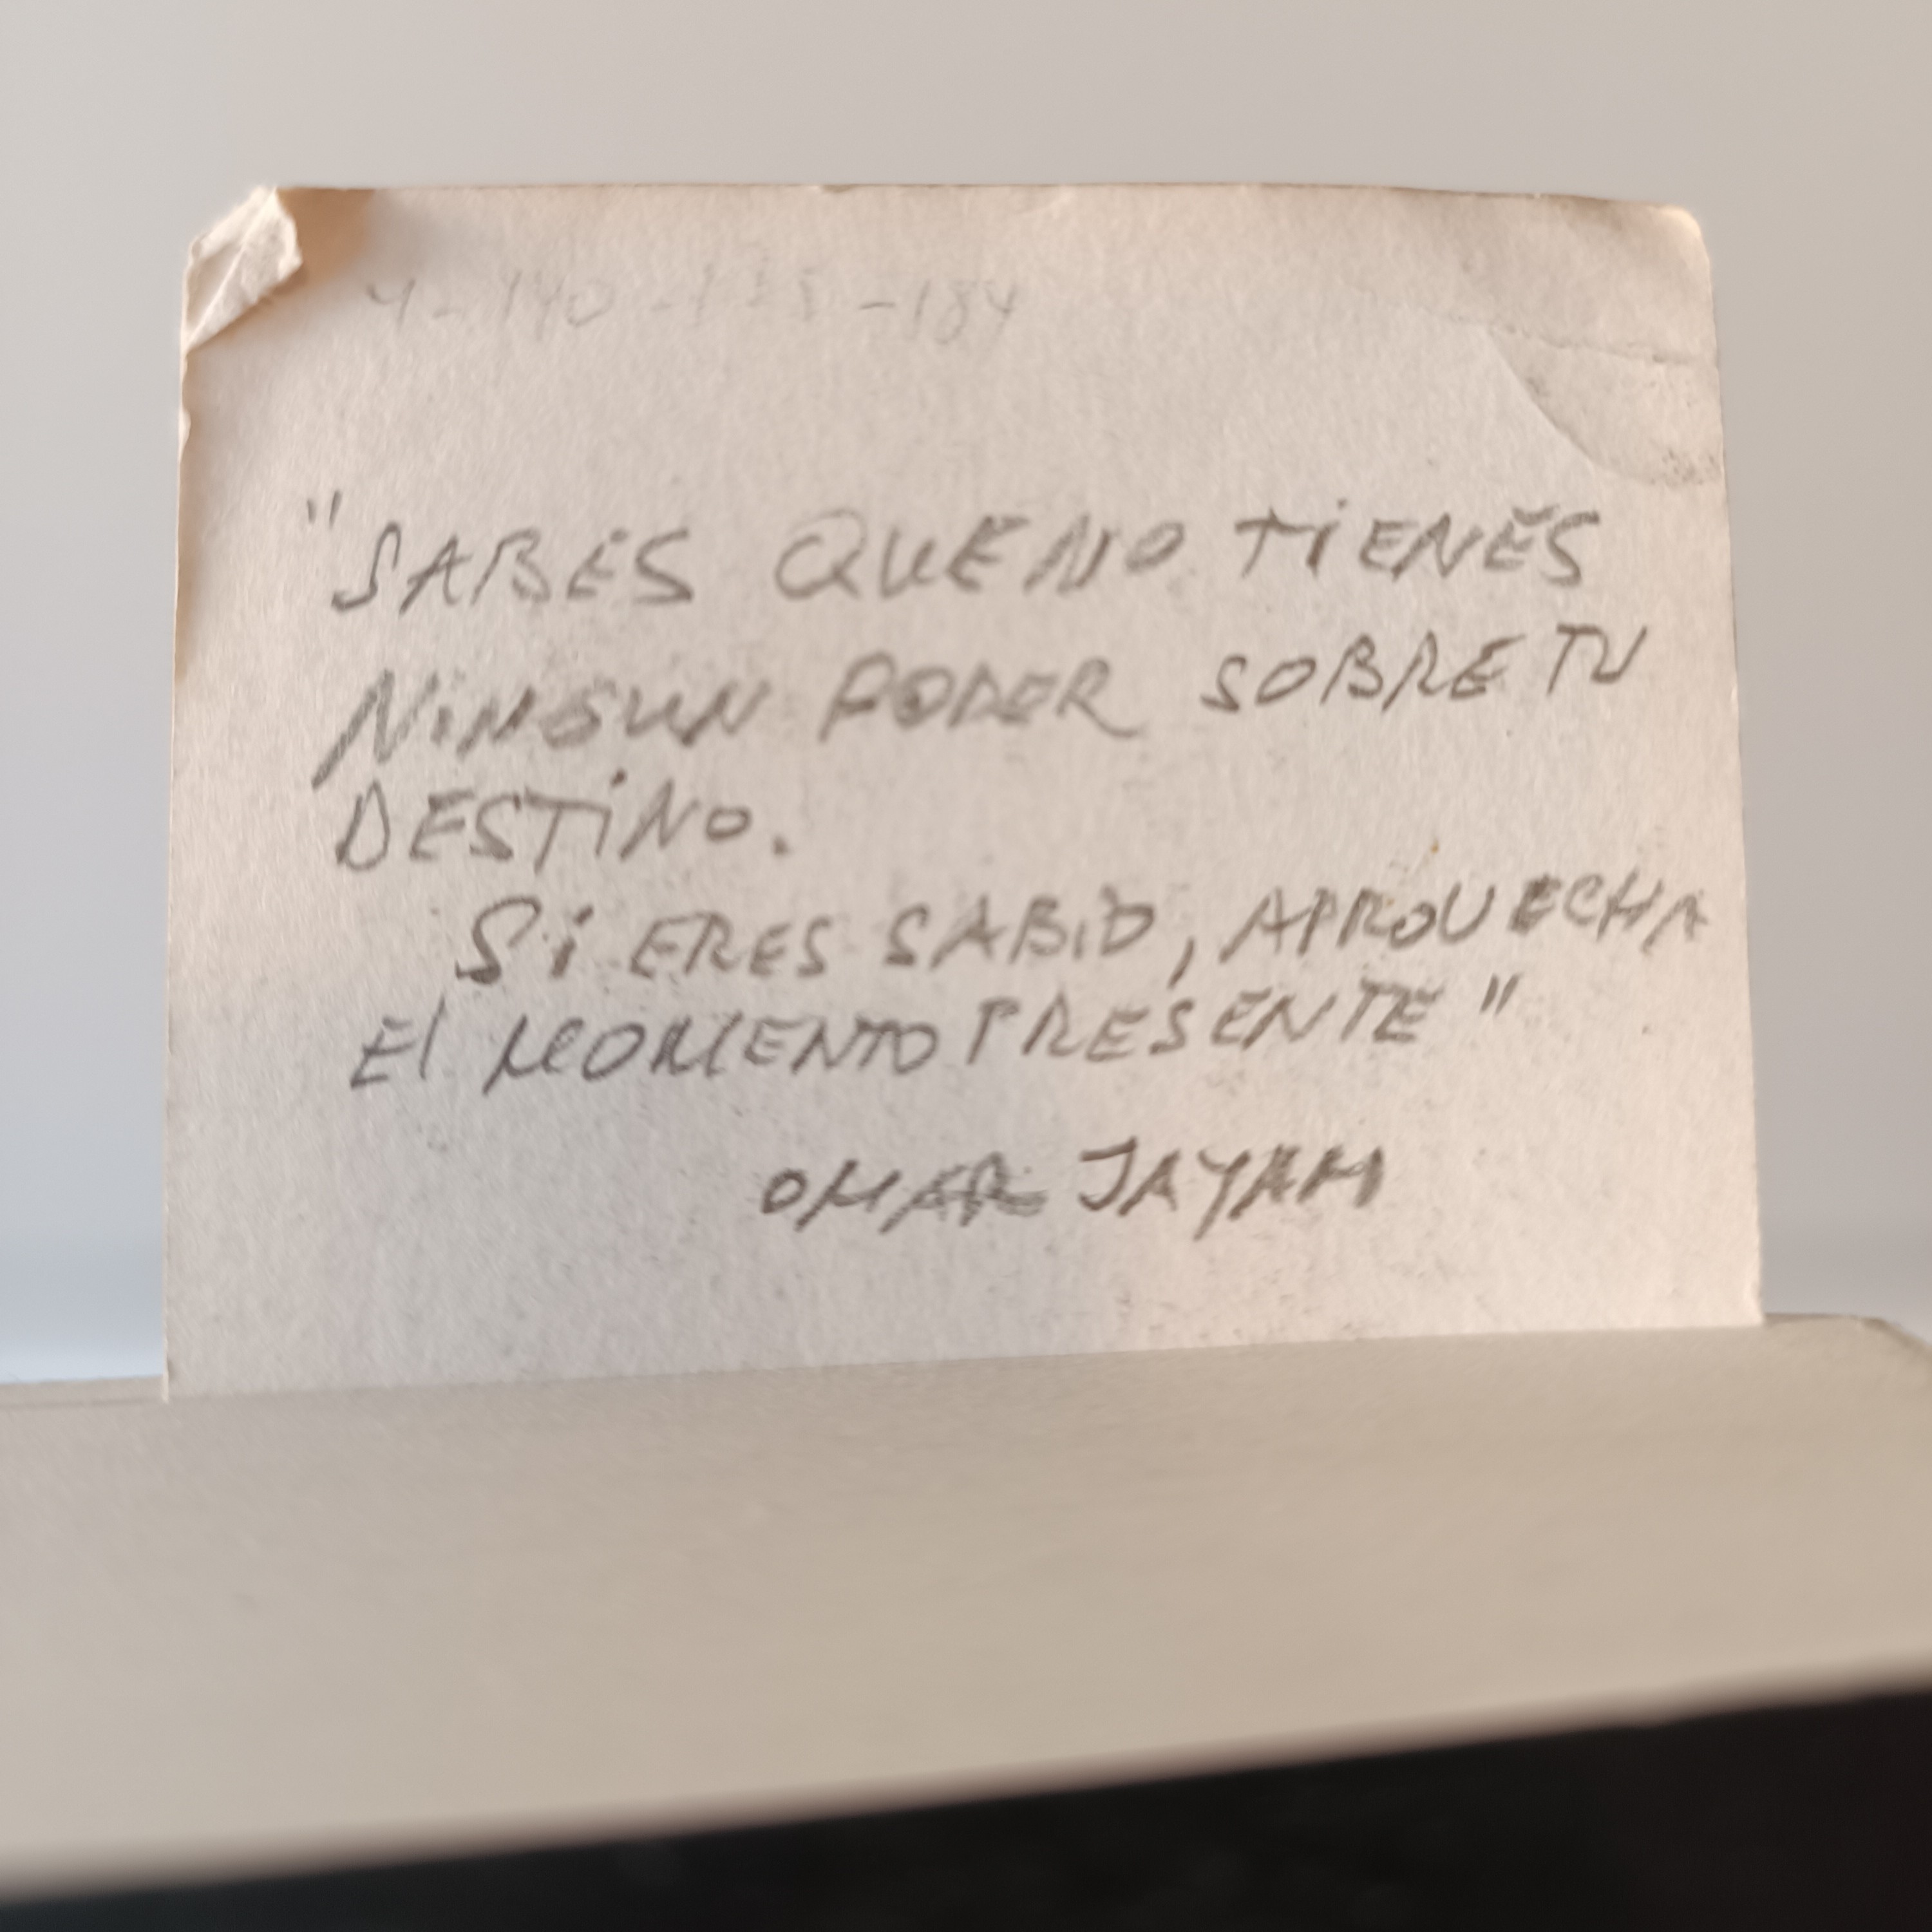 "SABES QUE NO TiENES
NiNGUN PODER SOBRE TU
DESTiNO.
Si ERES SABiO, APROVECHA
El MOMENTO PRESENTE"
OMAR JAYAM